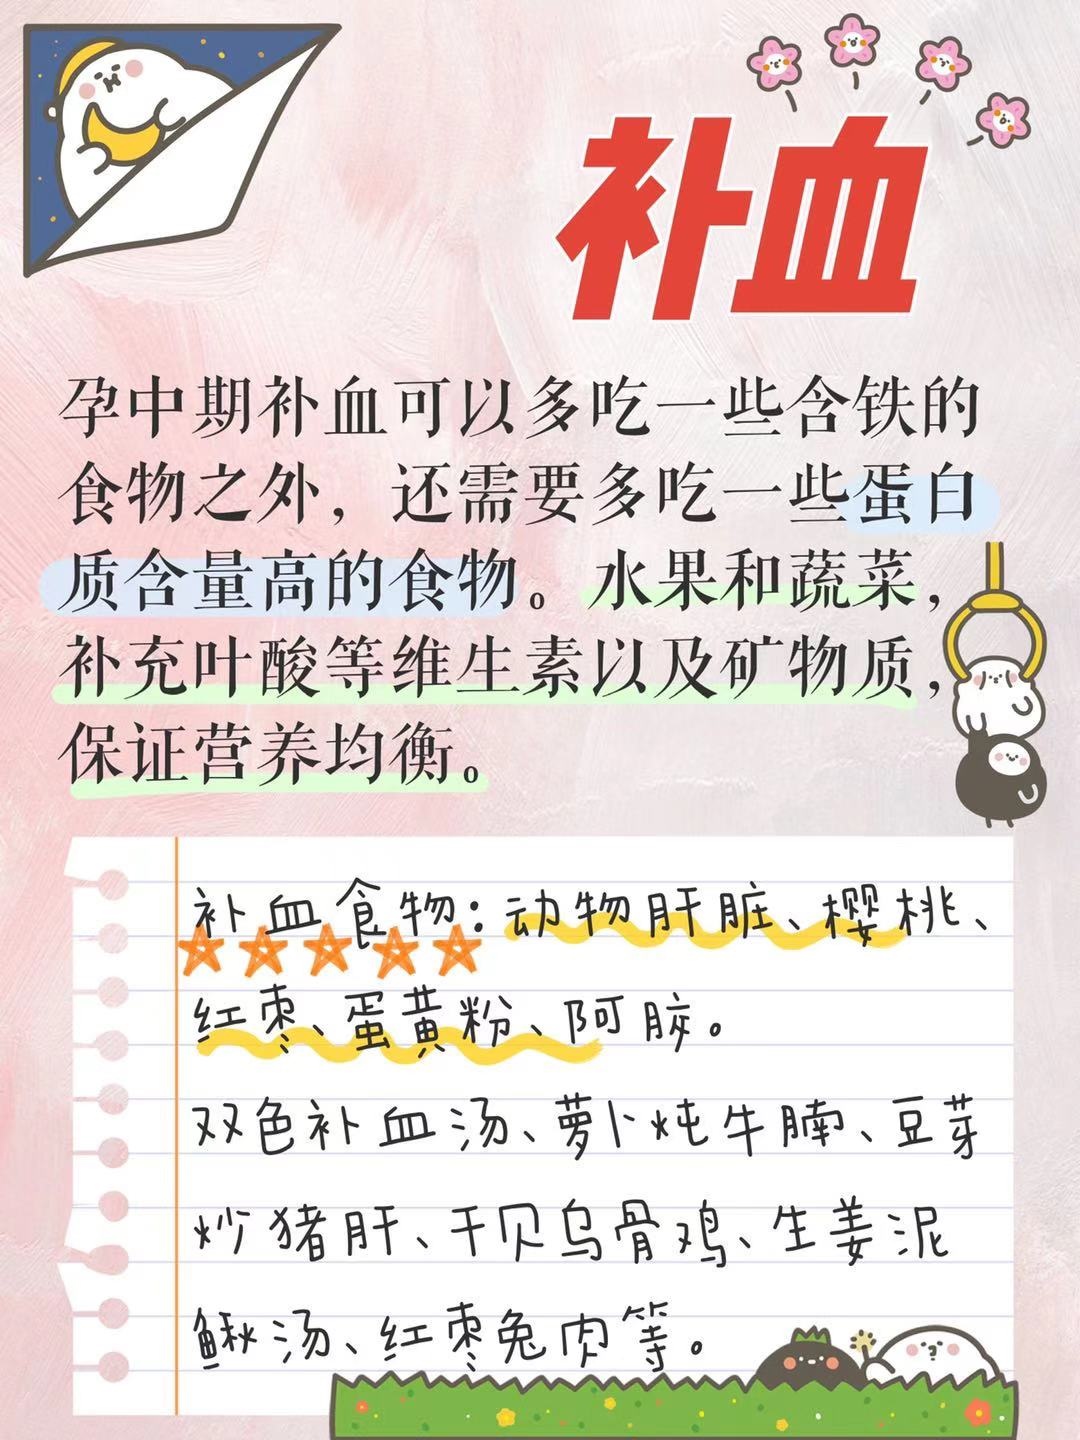 补血
孕中期补血可以多吃一些含铁的
食物之外，还需要多吃一些蛋白
质含量高的食物。水果和蔬菜，
补充叶酸等维生素以及矿物质，
保证营养均衡。
补血食物：动物肝脏、樱桃、
红枣、蛋黄粉、阿胶。
双色补血汤、萝卜炖牛腩、豆芽
炒猪肝、干贝乌骨鸡、生姜泥
鳅汤、红枣兔肉等。